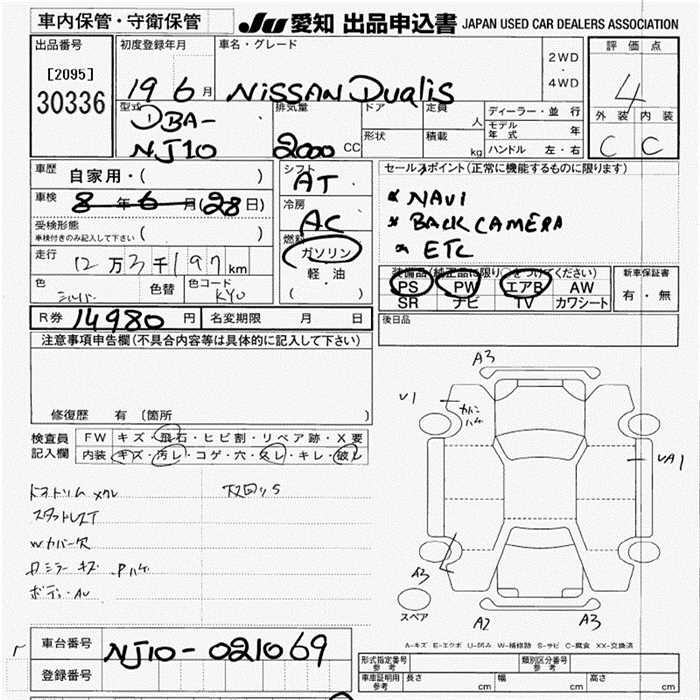 車内保管・守衛保管
JU 愛知 出品申込書 JAPAN USED CAR DEALERS ASSOCIATION
出品番号
[2095]
30336
初度登録年月
19 6 月
車名・グレード
NISSAN Dualis
2WD
・
4WD
評価点
4
外装 内装
C C
型式
DBA-
NJ10
排気量
2000 CC
ドア
定員 人
形状
積載 kg
ディーラー・並行
モデル年式 年
ハンドル 左・右
車歴
自家用・( )
車検
8 年 6 月(28日)
受検形態
車検付きのみ記入して下さい ( )
走行
12万3千197km
色
シルバー
色替
色コード
KY0
シフト
AT
冷房
AC
燃料
ガソリン
軽油
( )
セールスポイント(正常に機能するものに限ります)
* NAVI
* BACK CAMERA
* ETC
装備品(純正品に限り○をつけてください)
PS PW エアB AW
SR ナビ TV カワシート
新車保証書
有・無
R券 14980 円 名変期限 月 日
後日品
注意事項申告欄(不具合内容等は具体的に記入して下さい)
修復歴 有 (箇所
検査員
記入欄
FW キズ・飛石・ヒビ割・リペア跡・X要
内装 キズ・汚レ・コゲ・穴・スレ・キレ・破レ
スタッドレスT
Wカバー欠
ミラー キズ Pハゲ
A3
U1
カバン
ハゲ
UA1
A3
スペア
A2
A3
A-キズ E-エクボ U-凹み W-補修跡 S-サビ C-腐食 XX-交換済
車台番号
NJ10-021069
登録番号
形式指定番号
参考
類別区分番号
参考
車庫証明用
参考
長さ cm 幅 cm 高さ cm